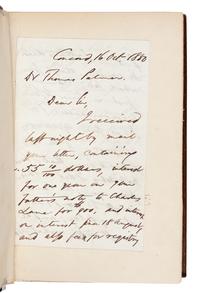 Concord, 16 Oct. 1850
Dr Thomas Palmer.
Dear Sir,
I received
last night by mail
your letter, containing
55 10/100 dollars, interest
for one year on your
father's note to Charles
Lane for 900, and
on interest since 18 August,
and also for registry